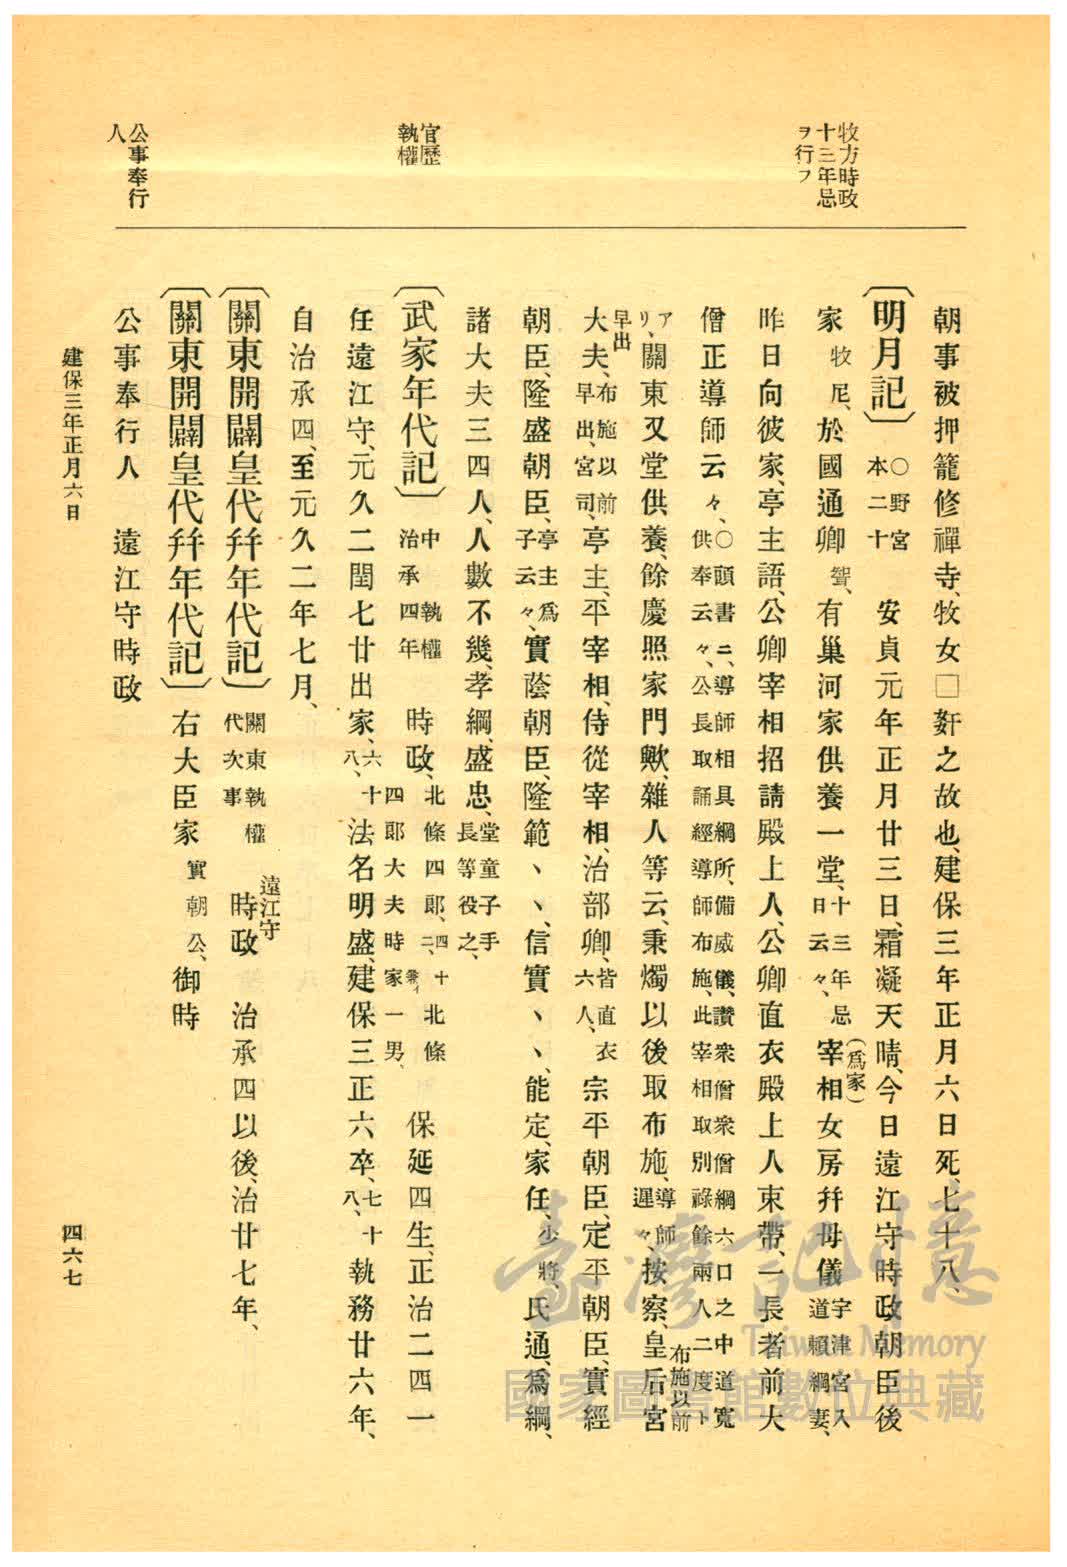 牧方時政
十三年忌
ヲ行フ
官歷
執權
公事奉行
人
朝事被押籠修禪寺、牧女□姧之故也、建保三年正月六日死、七十八、
〔明月記〕○野宮本二十 安貞元年正月廿三日、霜凝天晴、今日遠江守時政朝臣後
家牧尼、於國通卿聟、有巢河家供養一堂、十三年忌日云々、宰相(爲家)女房幷母儀宇津宮入道賴綱妻、
昨日向彼家、亭主語、公卿宰相招請殿上人、公卿直衣殿上人束帶、一長者前大
僧正導師云々、○頭書ニ、導師相具綱所、備威儀、讚衆僧衆僧綱六口之中道寬供奉云々、公長取誦經導師布施、此宰相取別祿餘兩人二度ト
アリ、關東又堂供養、餘慶照家門歟、雜人等云、秉燭以後取布施、導師遲々、按察、皇后宮布施以前早出
大夫、布施以前早出、宮司、亭主、平宰相、侍從宰相、治部卿、皆直衣六人、宗平朝臣、定平朝臣、實經
朝臣、隆盛朝臣、亭主爲子云々、實蔭朝臣、隆範丶丶、信實丶丶、能定、家任、少將、氏通、爲綱、
諸大夫三四人、人數不幾、孝綱、盛忠、堂童子手長等役之、
〔武家年代記〕中執權治承四年 時政、北條四郎、四十二、北條四郎大夫時家一男、 保延四生、正治二四一
任遠江守、元久二閏七廿出家、六十八、法名明盛、建保三正六卒、七十八、執務廿六年、
自治承四、至元久二年七月、
〔關東開闢皇代幷年代記〕關東執權代次事 遠江守時政 治承四以後、治廿七年、
〔關東開闢皇代幷年代記〕右大臣家實朝公、御時
公事奉行人 遠江守時政
建保三年正月六日
四六七
臺灣記憶
Taiwan Memory
國家圖書館數位典藏